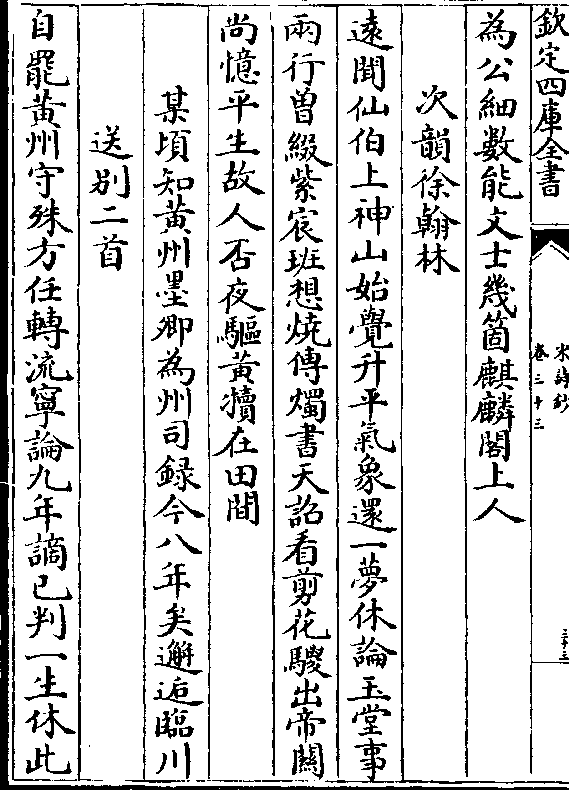 欽定四庫全書
宋詩鈔
卷三十三
三十三
為公細數能文士幾箇麒麟閣上人
次韻徐翰林
遠聞仙伯上神山始覺升平氣象還一夢休論玉堂事
兩行曽綴紫宸班想燒傳燭書天詔看剪花騣出帝闗
尚憶平生故人否夜驅黃犢在田間
某頃知黃州墨卿為州司録今八年矣邂逅臨川
送别二首
自罷黃州守殊方任轉流寧論九年謫已判一生休此